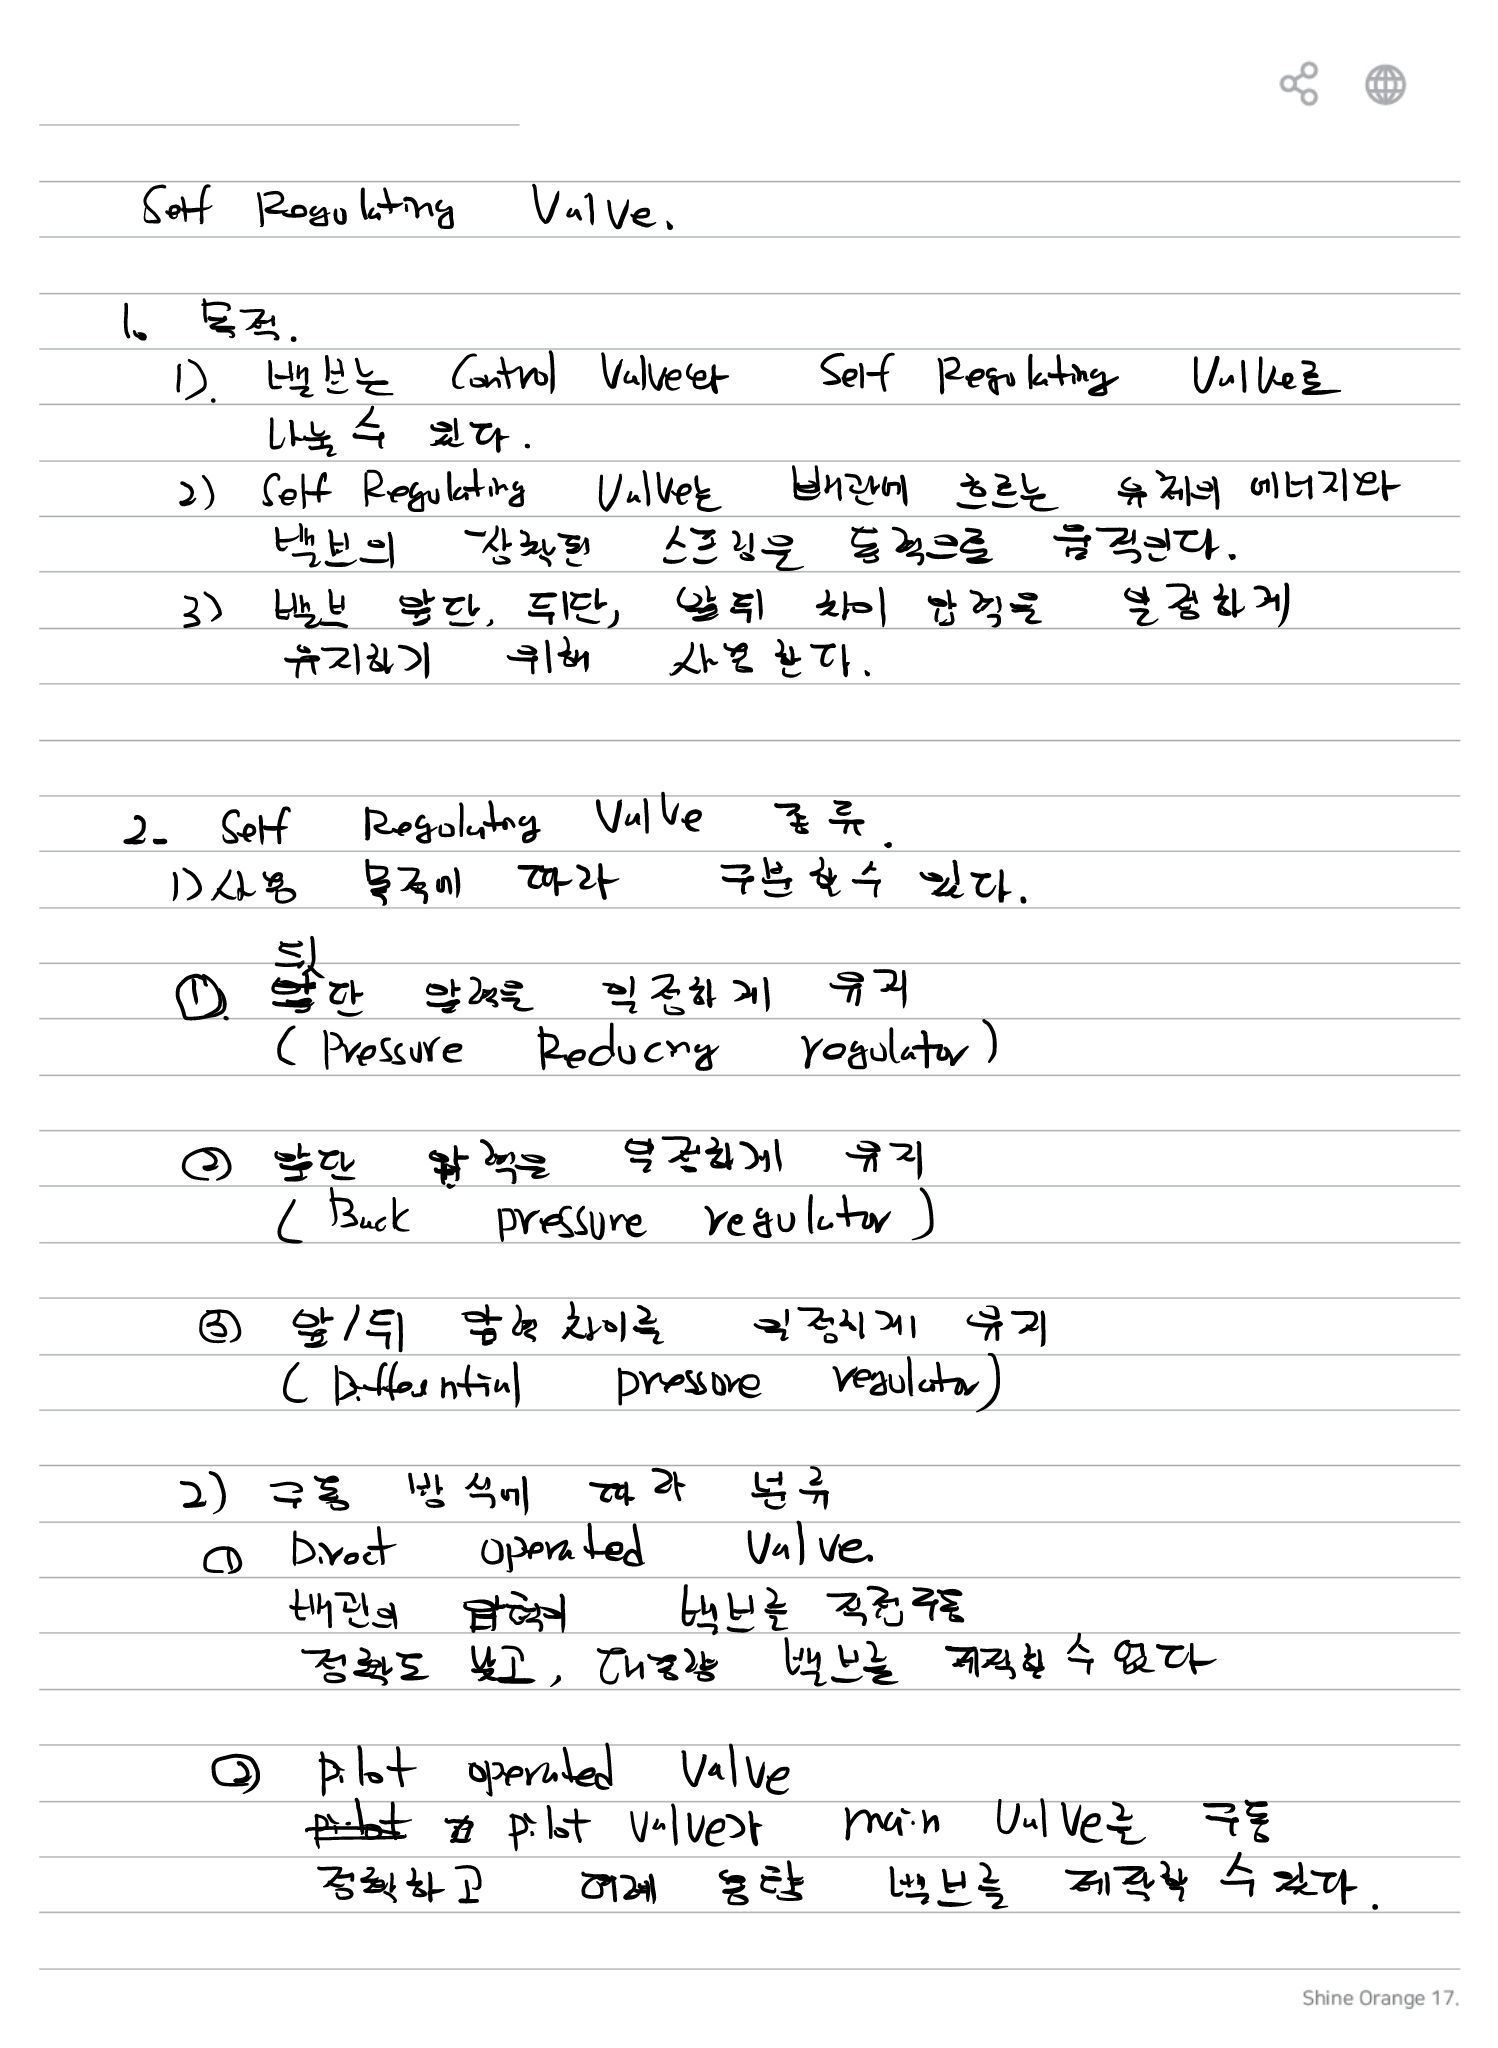 Self Regulating Valve.
1. 목적.
1). 밸브는 Control Valve와 Self Regulating Valve로
나눌 수 있다.
2) Self Regulating Valve는 배관에 흐르는 유체의 에너지와
밸브의 장착된 스프링을 동력으로 움직인다.
3) 밸브 앞단, 뒤단, 앞뒤 차이 압력을 일정하게
유지하기 위해 사용한다.
2- Self Regulating Valve 종류.
1) 사용 목적에 따라 구분할 수 있다.
뒷
①. 단 압력을 일정하게 유지
(Pressure Reducing regulator)
② 앞단 압력을 일정하게 유지
(Back pressure regulator)
③ 앞/뒤 압력 차이를 일정하게 유지
(Differential pressure regulator)
2) 구동 방식에 따라 분류
① Direct operated Valve.
배관의 압력이 밸브를 직접구동
정확도 낮고, 대용량 밸브를 제작할 수 없다
② Pilot operated Valve
pilot valve가 main Valve를 구동
정확하고 여러 용량 밸브를 제작할 수 있다.
Shine Orange 17.